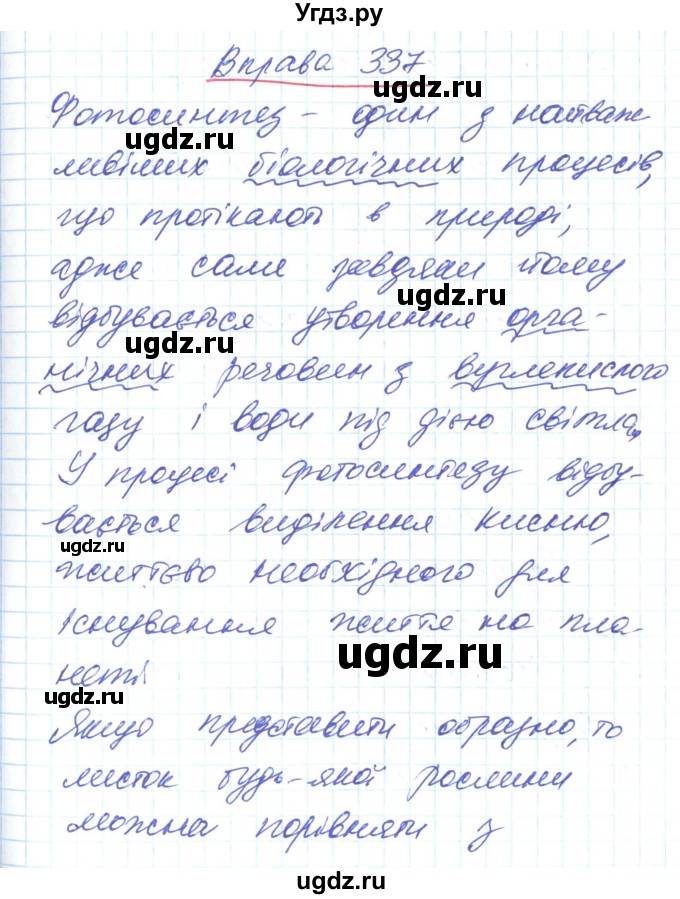 Угдз.ру
Вправа 337
ugdz.ru
Фотосинтез - один з найваж
ugdz.ru
ливіших біологічних процесів,
ugdz.ru
що протікають в природі,
адже саме завдяки йому
ugdz.ru
відбувається утворення орга-
ugdz.ru
нічних речовин з вуглекислого
газу і води під дією світла.
ugdz.ru
У процесі фотосинтезу відбу-
вається виділення кисню,
ugdz.ru
життєво необхідного для
ugdz.ru
існування життя на пла-
ugdz.ru
неті.
ugdz.ru
Якщо представити образно, то
ugdz.ru
листок будь-якої рослини
можна порівняти з
ugdz.ru
ugdz.ru